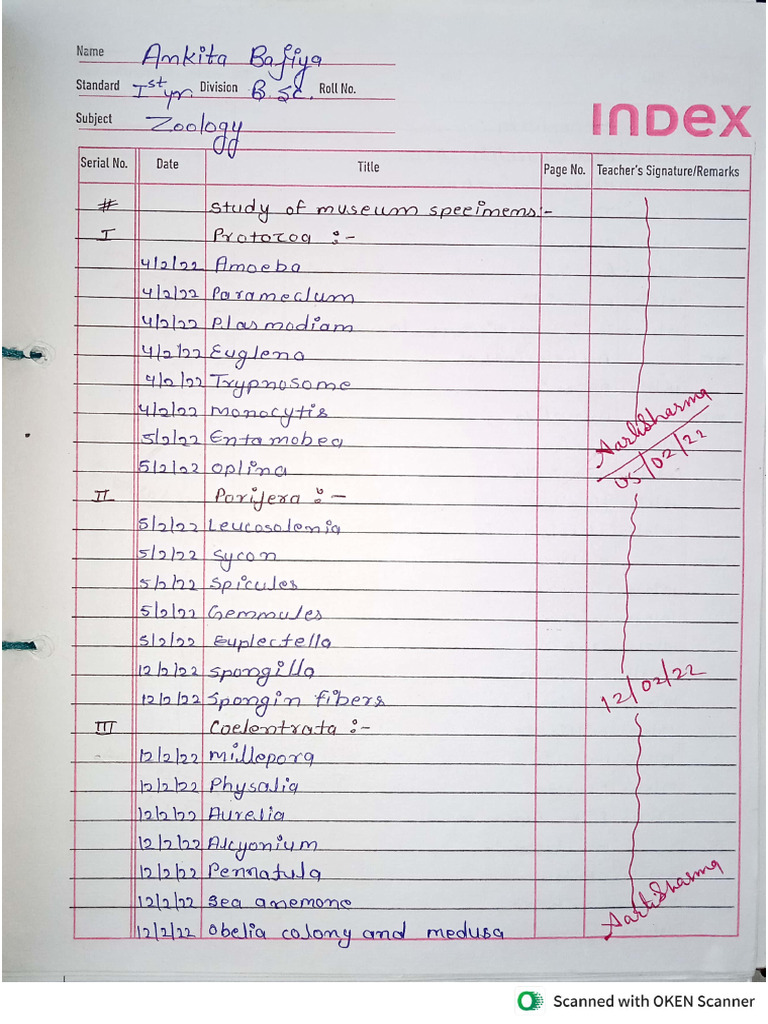 Name Ankita Bafiya
Standard Ist yr. Division B.Sc. Roll No.
Subject Zoology
INDEX
Serial No. Date Title Page No. Teacher's Signature/Remarks
# Study of museum specimens:-
I Protozoa :-
4/2/22 Amoeba
4/2/22 Parameclum
4/2/22 Plasmodiam
4/2/22 Euglena
4/2/22 Trypnosome
4/2/22 Monocytis
5/2/22 Entamobea
5/2/22 Oplina
AartiSharma
05/02/22
II Porifera :-
5/2/22 Leucosolemia
5/2/22 Sycon
5/2/22 Spicules
5/2/22 Gemmules
5/2/22 Euplectella
12/2/22 Spongilla
12/2/22 Spongin fibers
12/02/22
III Coelentrata :-
12/2/22 Millepora
12/2/22 Physalia
12/2/22 Aurelia
12/2/22 Alcyonium
12/2/22 Pennatula
12/2/22 Sea anemone
12/2/22 Obelia colony and medusa
AartiSharma
Scanned with OKEN Scanner